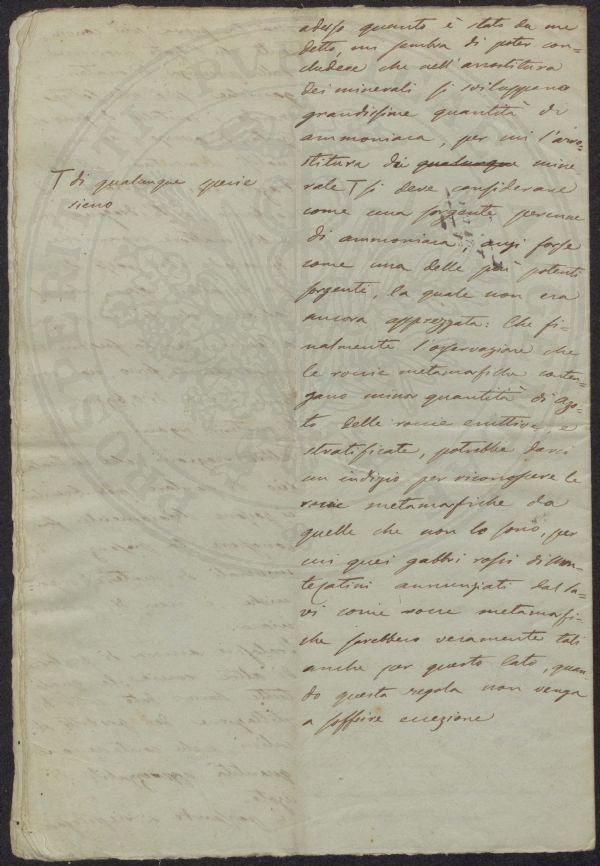 adesso quanto è stato da me
detto, mi sembra di poter con=
cludere che nell'arrostitura
dei minerali si sviluppano
grandissime quantità di
ammoniaca, per cui l'arro=
stitura di qualunque mine
rale T si deve considerare
T di qualunque specie
sieno
come una sorgente perenne
di ammoniaca, anzi forse
come una delle più potenti
sorgenti, la quale non era
ancora apprezzata: Che fi=
nalmente l'osservazione che
le roccie metamorfiche conten=
gano minor quantità di azo=
to delle roccie eruttive, e
stratificate, potrebbe darci
un indizio per riconoscere le
roccie metamorfiche da
quelle che non lo sono, per
cui quei gabbri rossi di Mon=
tecatini annunziati dal Sa=
vi come roccie metamorfi=
che sarebbero veramente tali
anche per questo lato, quan=
do questa regola non venga
a soffrire eccezione
PROSPERITATI PUBLICAE